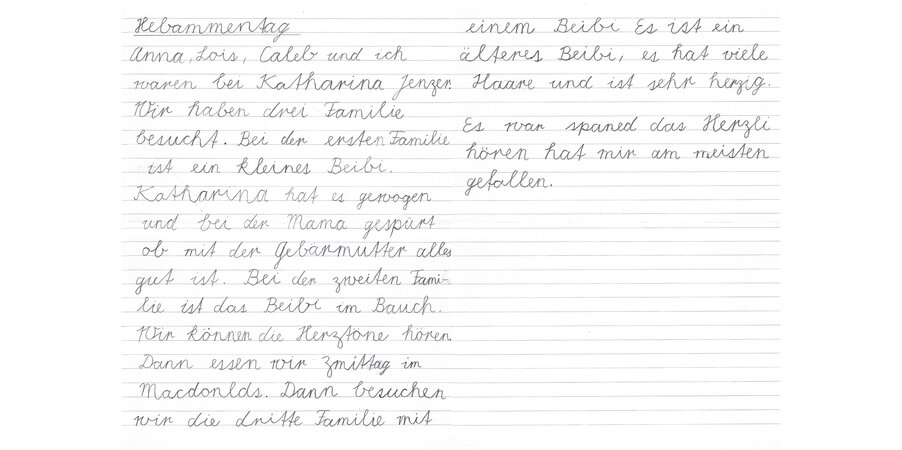 Hebammentag
Anna, Lois, Caleb und ich
waren bei Katharina Jenzer.
Wir haben drei Familie
besucht. Bei der ersten Familie
ist ein kleines Beibi.
Katharina hat es gewogen
und bei der Mama gespürt
ob mit der Gebärmutter alles
gut ist. Bei der zweiten Fami-
lie ist das Beibi im Bauch.
Wir können die Herztöne hören.
Dann essen wir zmittag im
Macdonlds. Dann besuchen
wir die dritte Familie mit
einem Beibi Es ist ein
älteres Beibi, es hat viele
Haare und ist sehr herzig.
Es war spaned das Herzli
hören hat mir am meisten
gefallen.